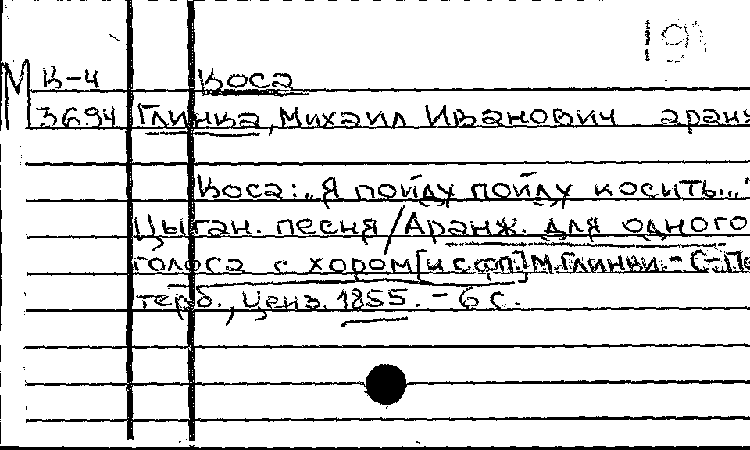 19
М К-4 Коса
3694 Глинка, Михаил Иванович аранж
Коса: „Я пойду пойду косить..."
Цыган. песня/Аранж. для одного
голоса с хором[и с фп.]М.Глинки.-С-Пе
терб., Ценз. 1855. - 6 с.